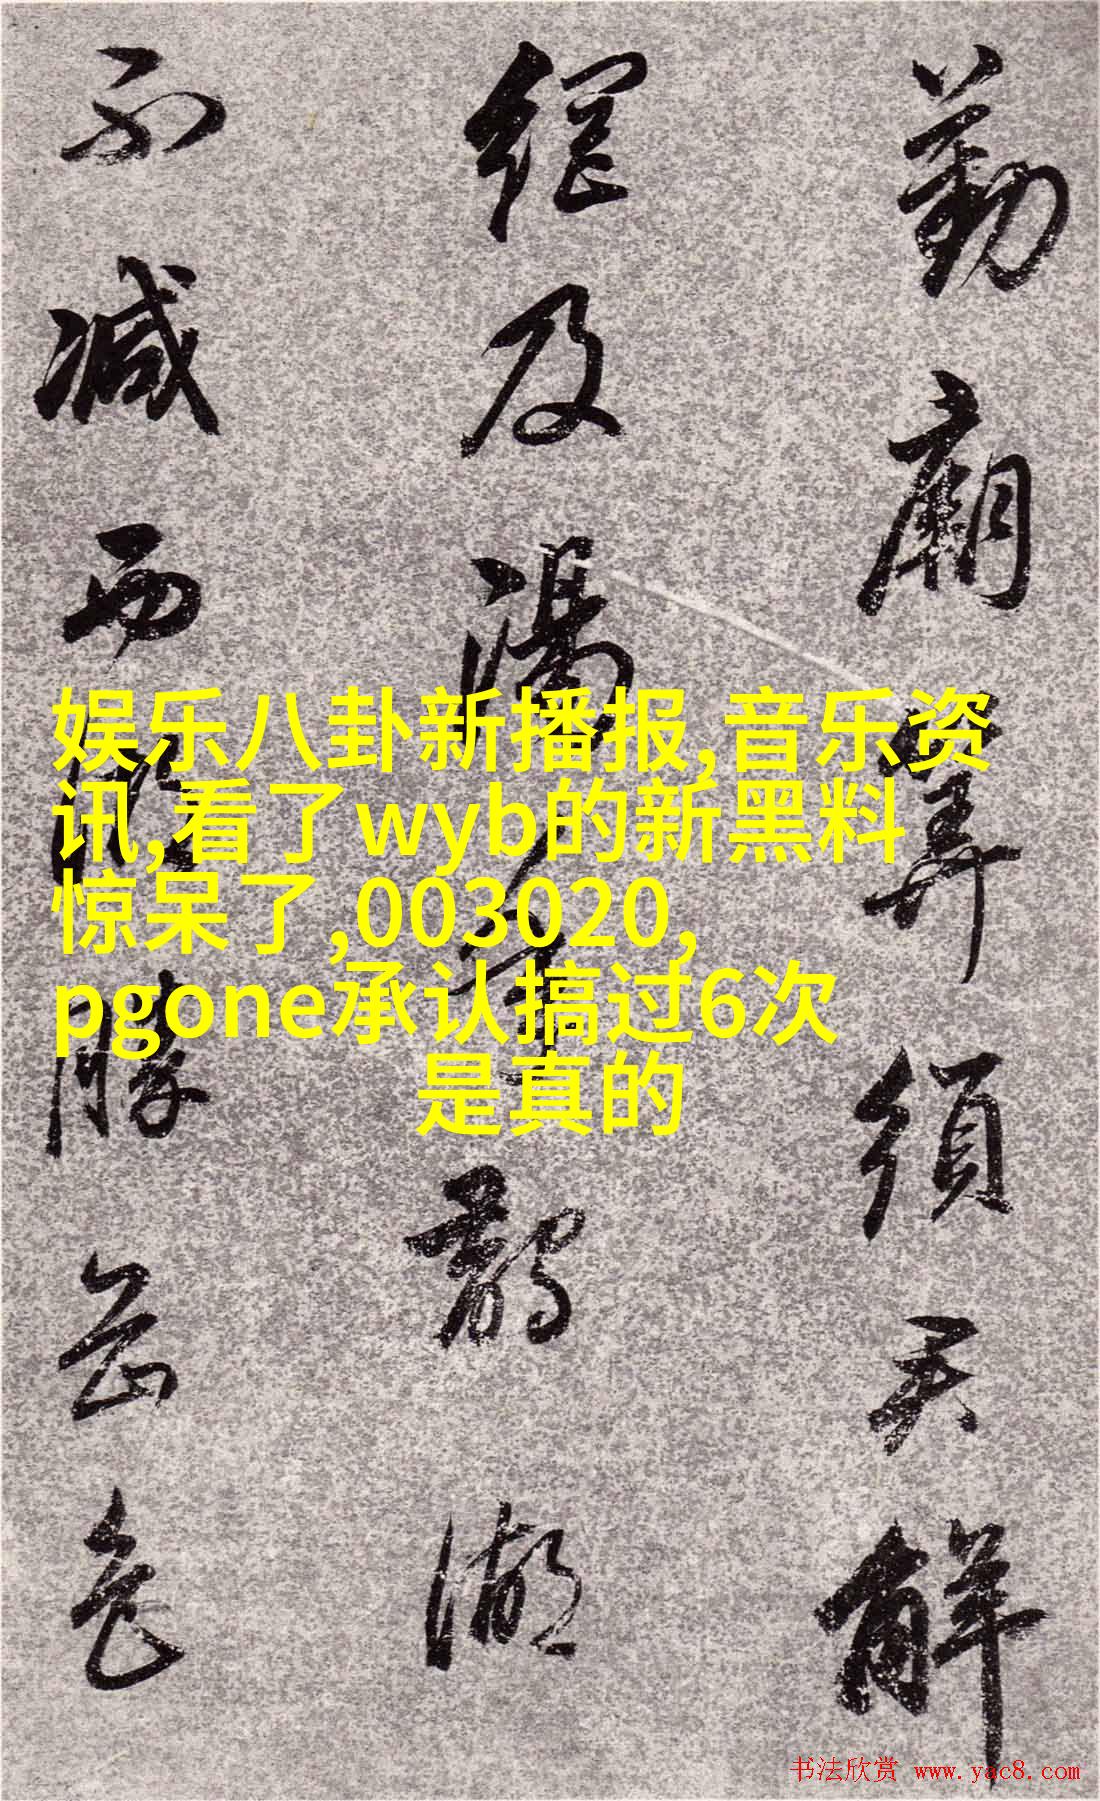 勤廟筭須天解
網及潘年鷸湖
不減西江勝岳色
娱乐八卦新播报,音乐资
讯,看了wyb的新黑料
惊呆了,003020,
pgone承认搞过6次
是真的
书法欣赏 www.yac8.com